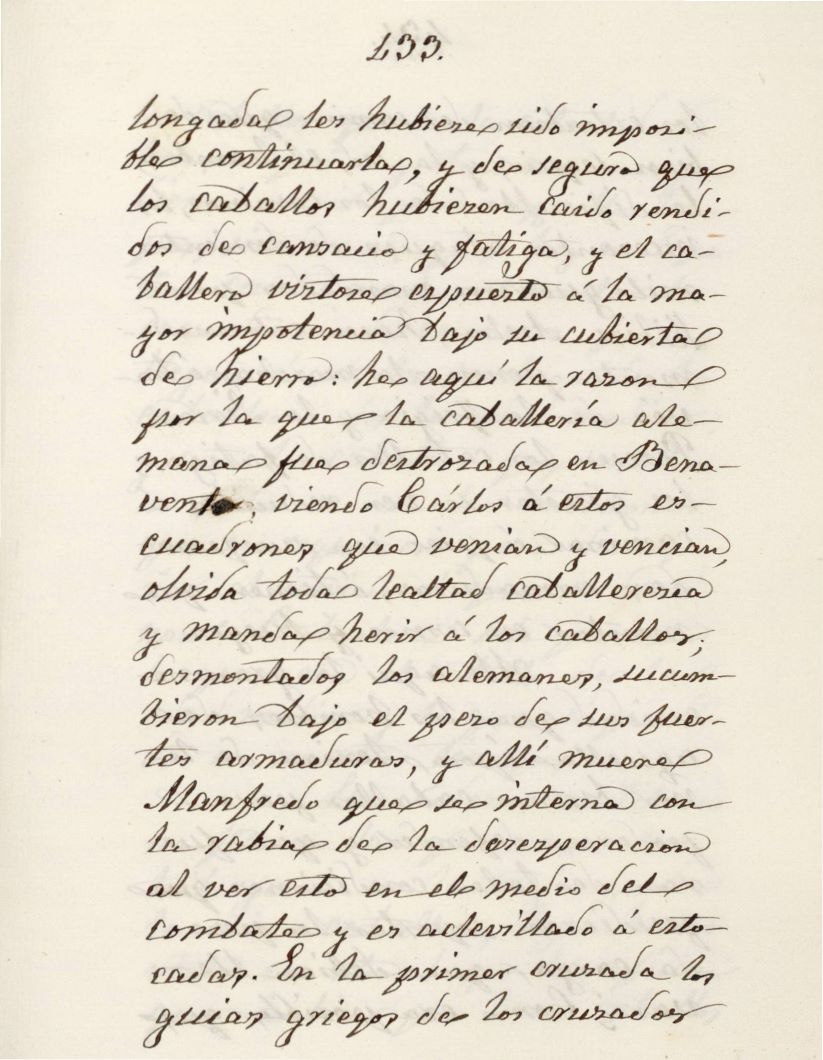 133.
longada les hubiese sido imposi-
ble continuarla, y de seguro que
los caballos hubiesen caido rendi-
dos de cansacio y fatiga, y el ca-
ballero vistose espuesto á la ma-
yor impotencia bajo su cubierta
de hierro: he aquí la razon
por la que la caballería ale-
mana fue destrozada en Bena-
vento, viendo Cárlos á estos es-
cuadrones que venian y vencian,
olvida toda lealtad caballeresca
y manda herir á los caballos;
desmontados los alemanes, sucum-
bieron bajo el peso de sus fuer-
tes armaduras, y allí muere
Manfredo que se interna con
la rabia de la desesperacion
al ver esto en el medio del
combate y es aclevillado á esto-
cadas. En la primer cruzada los
guias griegos de los cruzados